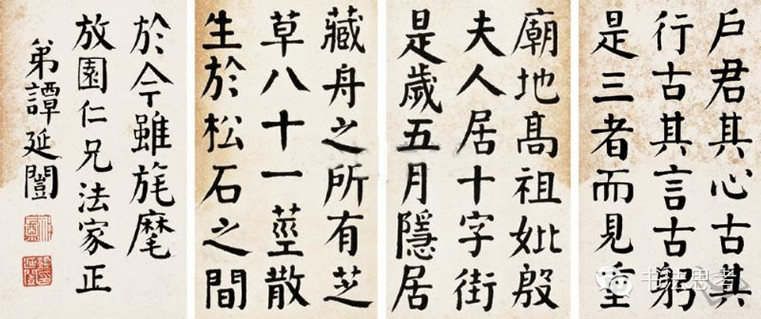 戶君其心古其
行古其言古躬
是三者而見重
廟地高祖妣殷
夫人居十字街
是歲五月隱居
藏舟之所有芝
草八十一莖散
生於松石之間
於今雖旄麾
放園仁兄法家正
弟譚延闓
书法思考